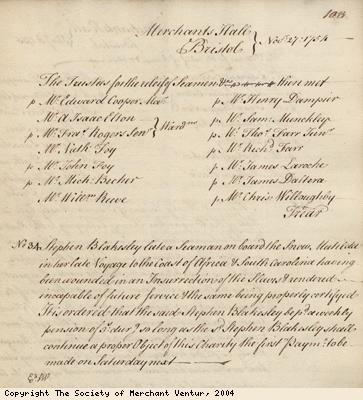 Merchants Hall
Bristol } Novr. 27. 1754
The Trustees for the relief of Seamen &ca then met
p Mr. Edward Cooper Mar.
Mr. Isaac Elton
p Mr. Fras. Rogers Senr. } Wardens
Mr. Nath. Foy
p Mr. John Foy
p Mr. Mich. Becher
Mr. Willm. Reeve
p Mr. Henry Dampier
p Mr. Saml. Munckley
p Mr. Thos. Farr Junr.
p Mr. Richd. Farr
p Mr. James Laroche
p Mr. James Daltera
p Mr. Christ. Willoughby
Trear
No. 34. Stephen Blakesley late a Seaman on board the Snow
in her late Voyage to the Coast of Africa & South Carolina having
been wounded in an Insurrection of the Slaves & rendered
incapable of future Service & the same being properly certifyed
It is ordered that the said Stephen Blakesley be pd. a weekly
pension of so long as the sd. Stephen Blakesley shall
continue a proper Object of this Charity the first Paymt. to be
made on Saturday next
Copyright The Society of Merchant Ventur, 2004